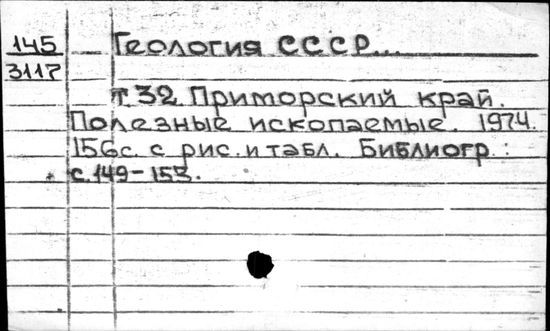 145 Геология СССР...
3117
т 32 Приморский край.
Полезные ископаемые. 1974.
156с. с рис. и табл. Библиогр.:
с. 149-153.